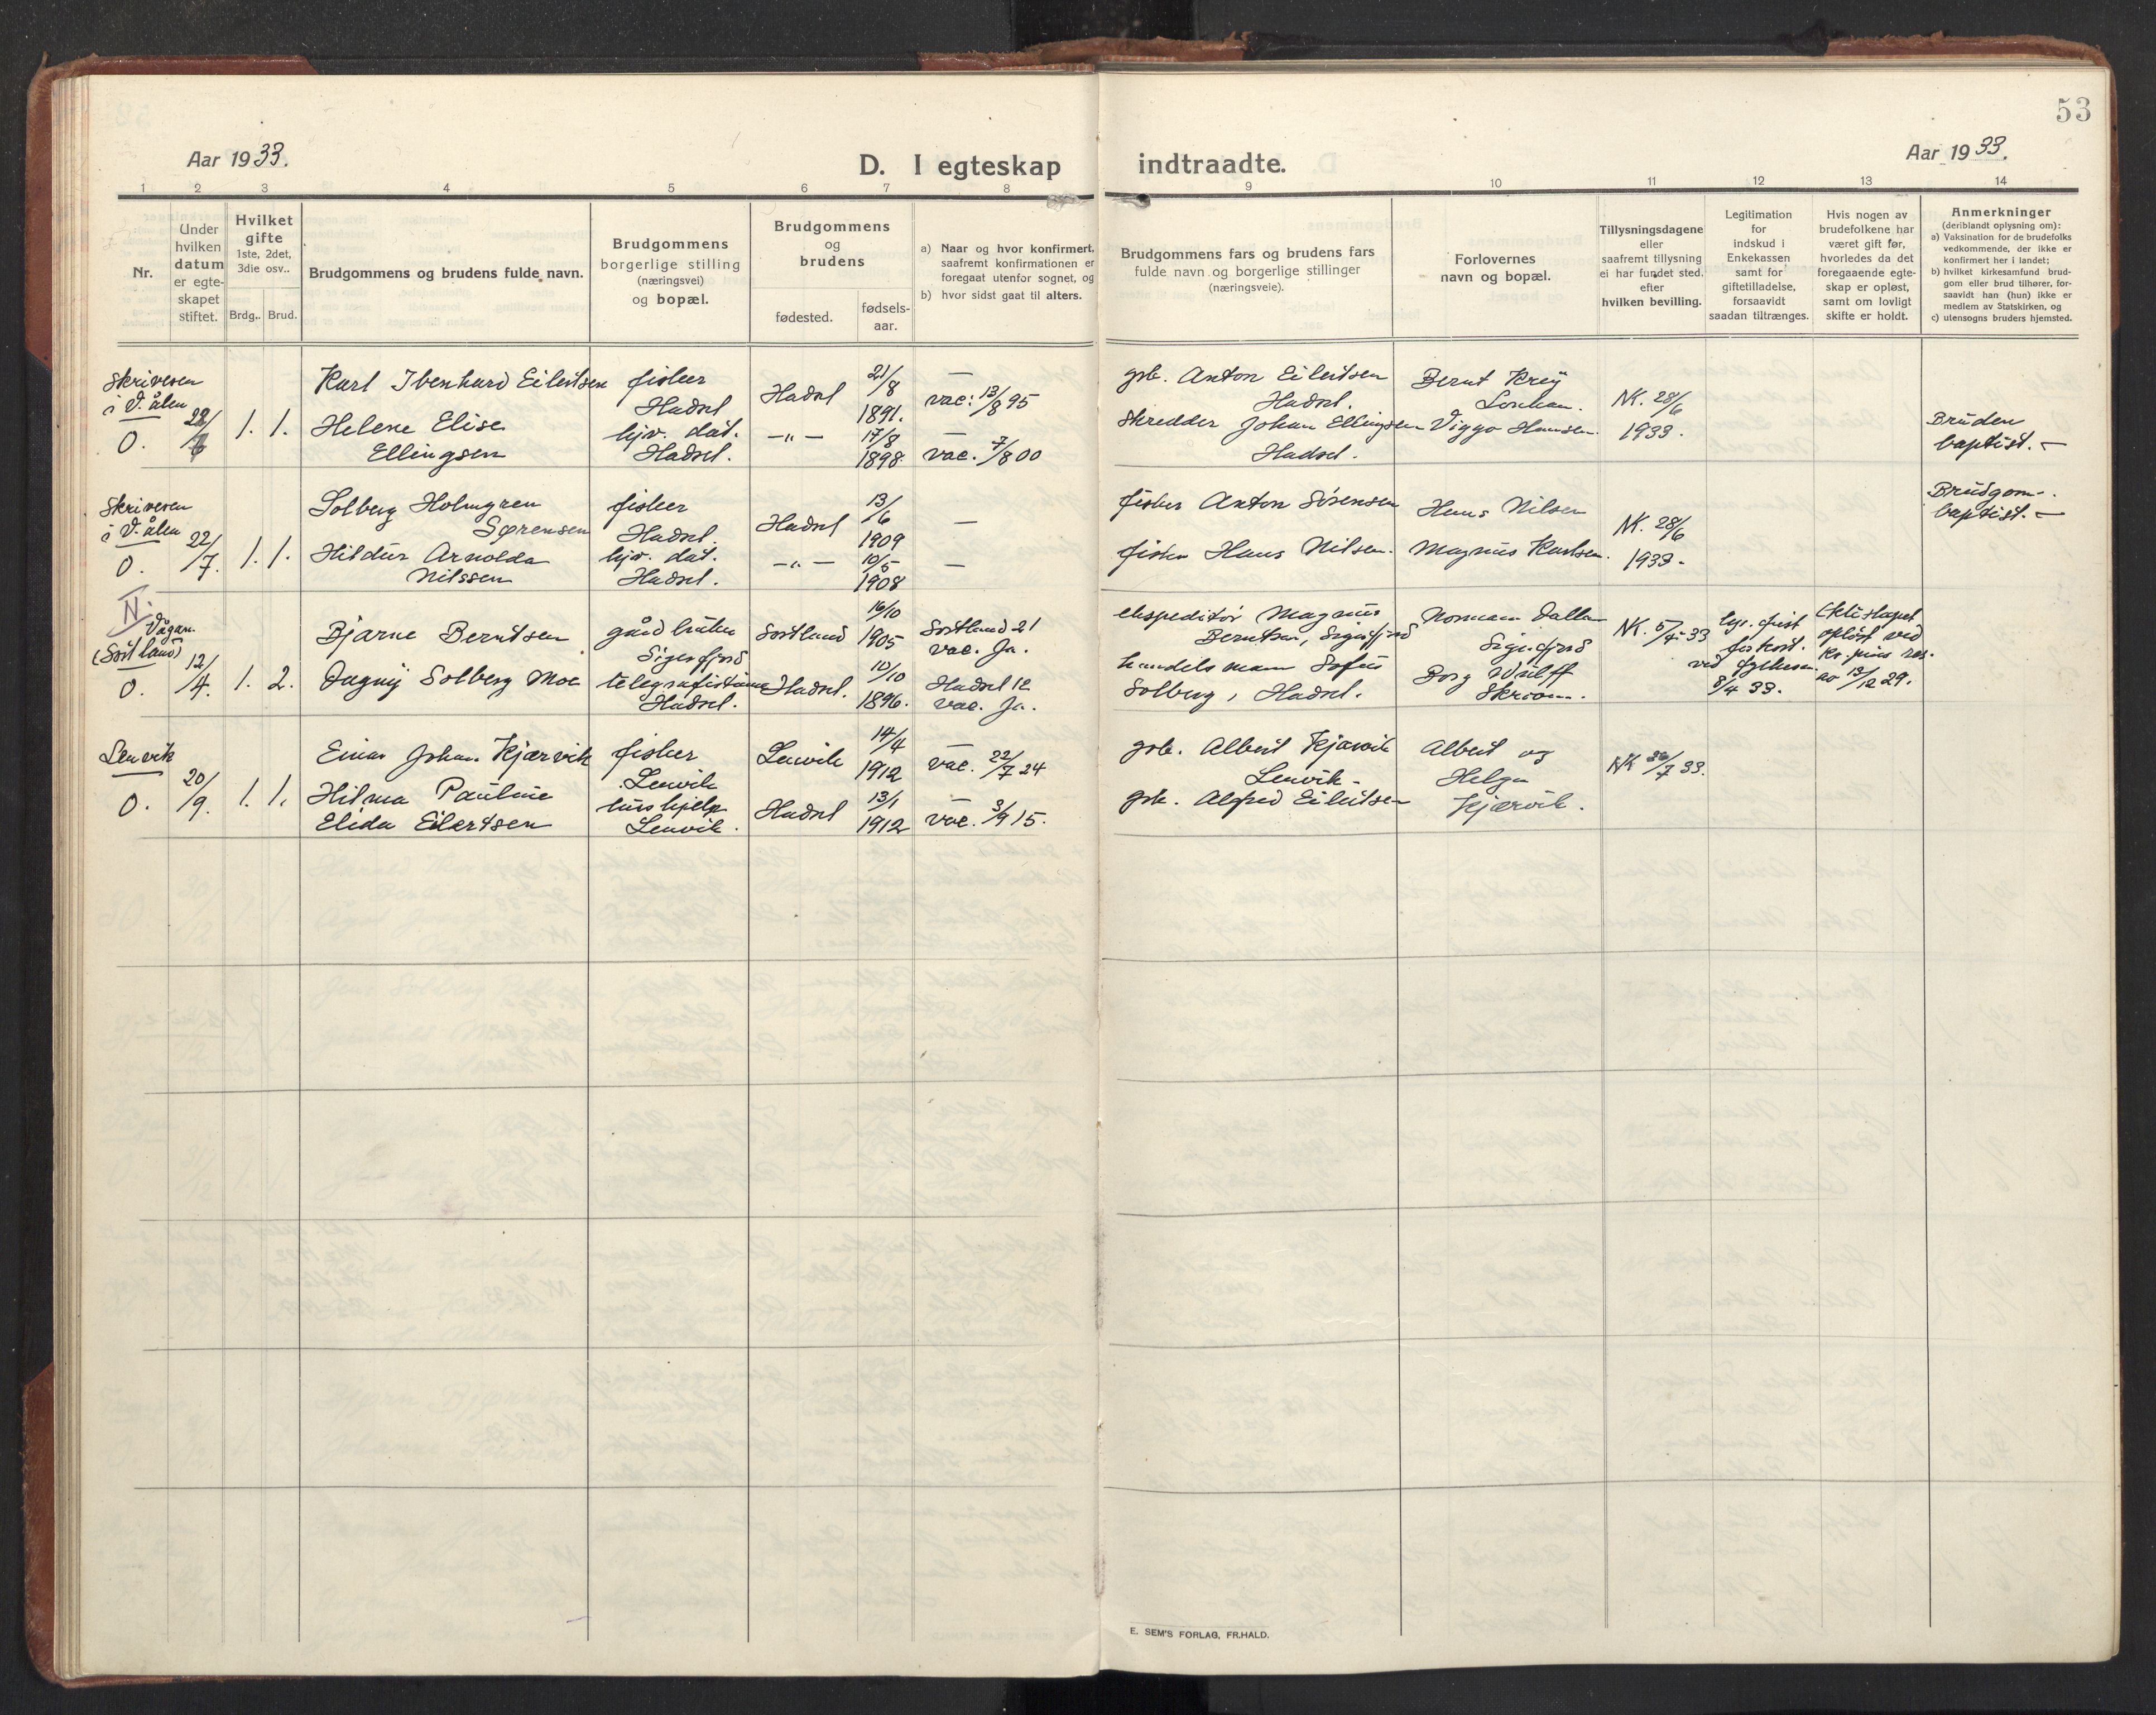 53
Aar 1933.
D. I egteskap indtraadte.
Aar 1933.
1 2 3 4 5 6 7 8 9 10 11 12 13 14
Nr.
Under hvilken datum er egte-skapet stiftet.
Hvilket gifte
1ste, 2det, 3die osv..
Brdg.. Brud.
Brudgommens og brudens fulde navn.
Brudgommens borgerlige stilling (næringsvei) og bopæl.
Brudgommens og brudens
fødested.
fødsels-aar.
a) Naar og hvor konfirmert, saafremt konfirmationen er foregaat utenfor sognet, og
b) hvor sidst gaat til alters.
Brudgommens fars og brudens fars fulde navn og borgerlige stillinger (næringsveie).
Forlovernes navn og bopæl.
Tillysningsdagene eller saafremt tillysning ei har fundet sted. efter hvilken bevilling.
Legitimation for indskud i Enkekassen samt for giftetilladelse, forsaavidt saadan tiltrænges.
Hvis nogen av brudefolkene har været gift før, hvorledes da det foregaaende egte-skap er opløst, samt om lovligt skifte er holdt.
Anmerkninger
(deriblandt oplysning om):
a) Vaksination for de brudefolks vedkommende, der ikke er konfirmert her i landet;
b) hvilket kirkesamfund brud-gom eller brud tilhører, for-saavidt han (hun) ikke er medlem av Statskirken, og
c) utensogns bruders hjemsted.
Skriveren
i V. ålen
O.
22/7
1. 1.
Karl Ibenhard Eilertsen
Helene Elise
Ellingsen
fisker
Hadsel
hjv. dat.
Hadsel.
Hadsel
-"-
21/8
1891.
17/8
1898.
—
vac: 13/8 95
—
vac. 7/8 00
gbr. Anton Eilertsen
Hadsel.
Skredder Johan Ellingsen
Hadsel.
Bernt Krey
Viggo Hansen.
NK. 28/6
1933.
Bruden
baptist. —
Skriveren
i V. ålen
O.
22/7.
1. 1.
Solberg Holmgren
Sørensen
Hildur Arnolda
Nilssen
fisker
Hadsel.
hjv. dat.
Hadsel.
Hadsel
-"-
13/6
1909
10/5
1908
—
—
fisker Anton Sørensen
fisker Hans Nilsen.
Hans Nilsen
Magnus Karlsen.
NK. 28/6
1933.
Brudgom-.
baptist. —
N.
Vågan.
(Sortland)
O.
12/4.
1. 2.
Bjarne Berntsen
Dagny Solberg Moe
gårdbruker
Sigerfjord
telegrafistinne
Hadsel.
Sortland
Hadsel.
16/10
1905
10/10
1896.
Sortland 21
vac. Ja.
Hadsel 12
vac. Ja.
ekspeditør Magnus
Berntsen, Sigerfjord
handelsmann Sofus
Solberg, Hadsel.
Norman Dallan
Sigerfjord
Borg Wulff
NK. 5/4-33
ved fylkesm.
8/4 33.
Ekteskapet
opløst ved
kr. res.
av 13/12 29.
Lenvik
O.
20/9.
1. 1.
Einar Johan Kjærvik
Hilma Pauline
Elida Eilertsen
fisker
Lenvik
hushjelp
Lenvik.
Lenvik
Hadsel
14/4
1912
13/1
1912
—
vac. 22/7 24
—
vac. 3/9 15.
gbr. Albert Kjærvik
Lenvik.
gbr. Alfred Eilertsen
Albert og
Helga
Kjærvik.
E. SEM'S FORLAG, FR.HALD.